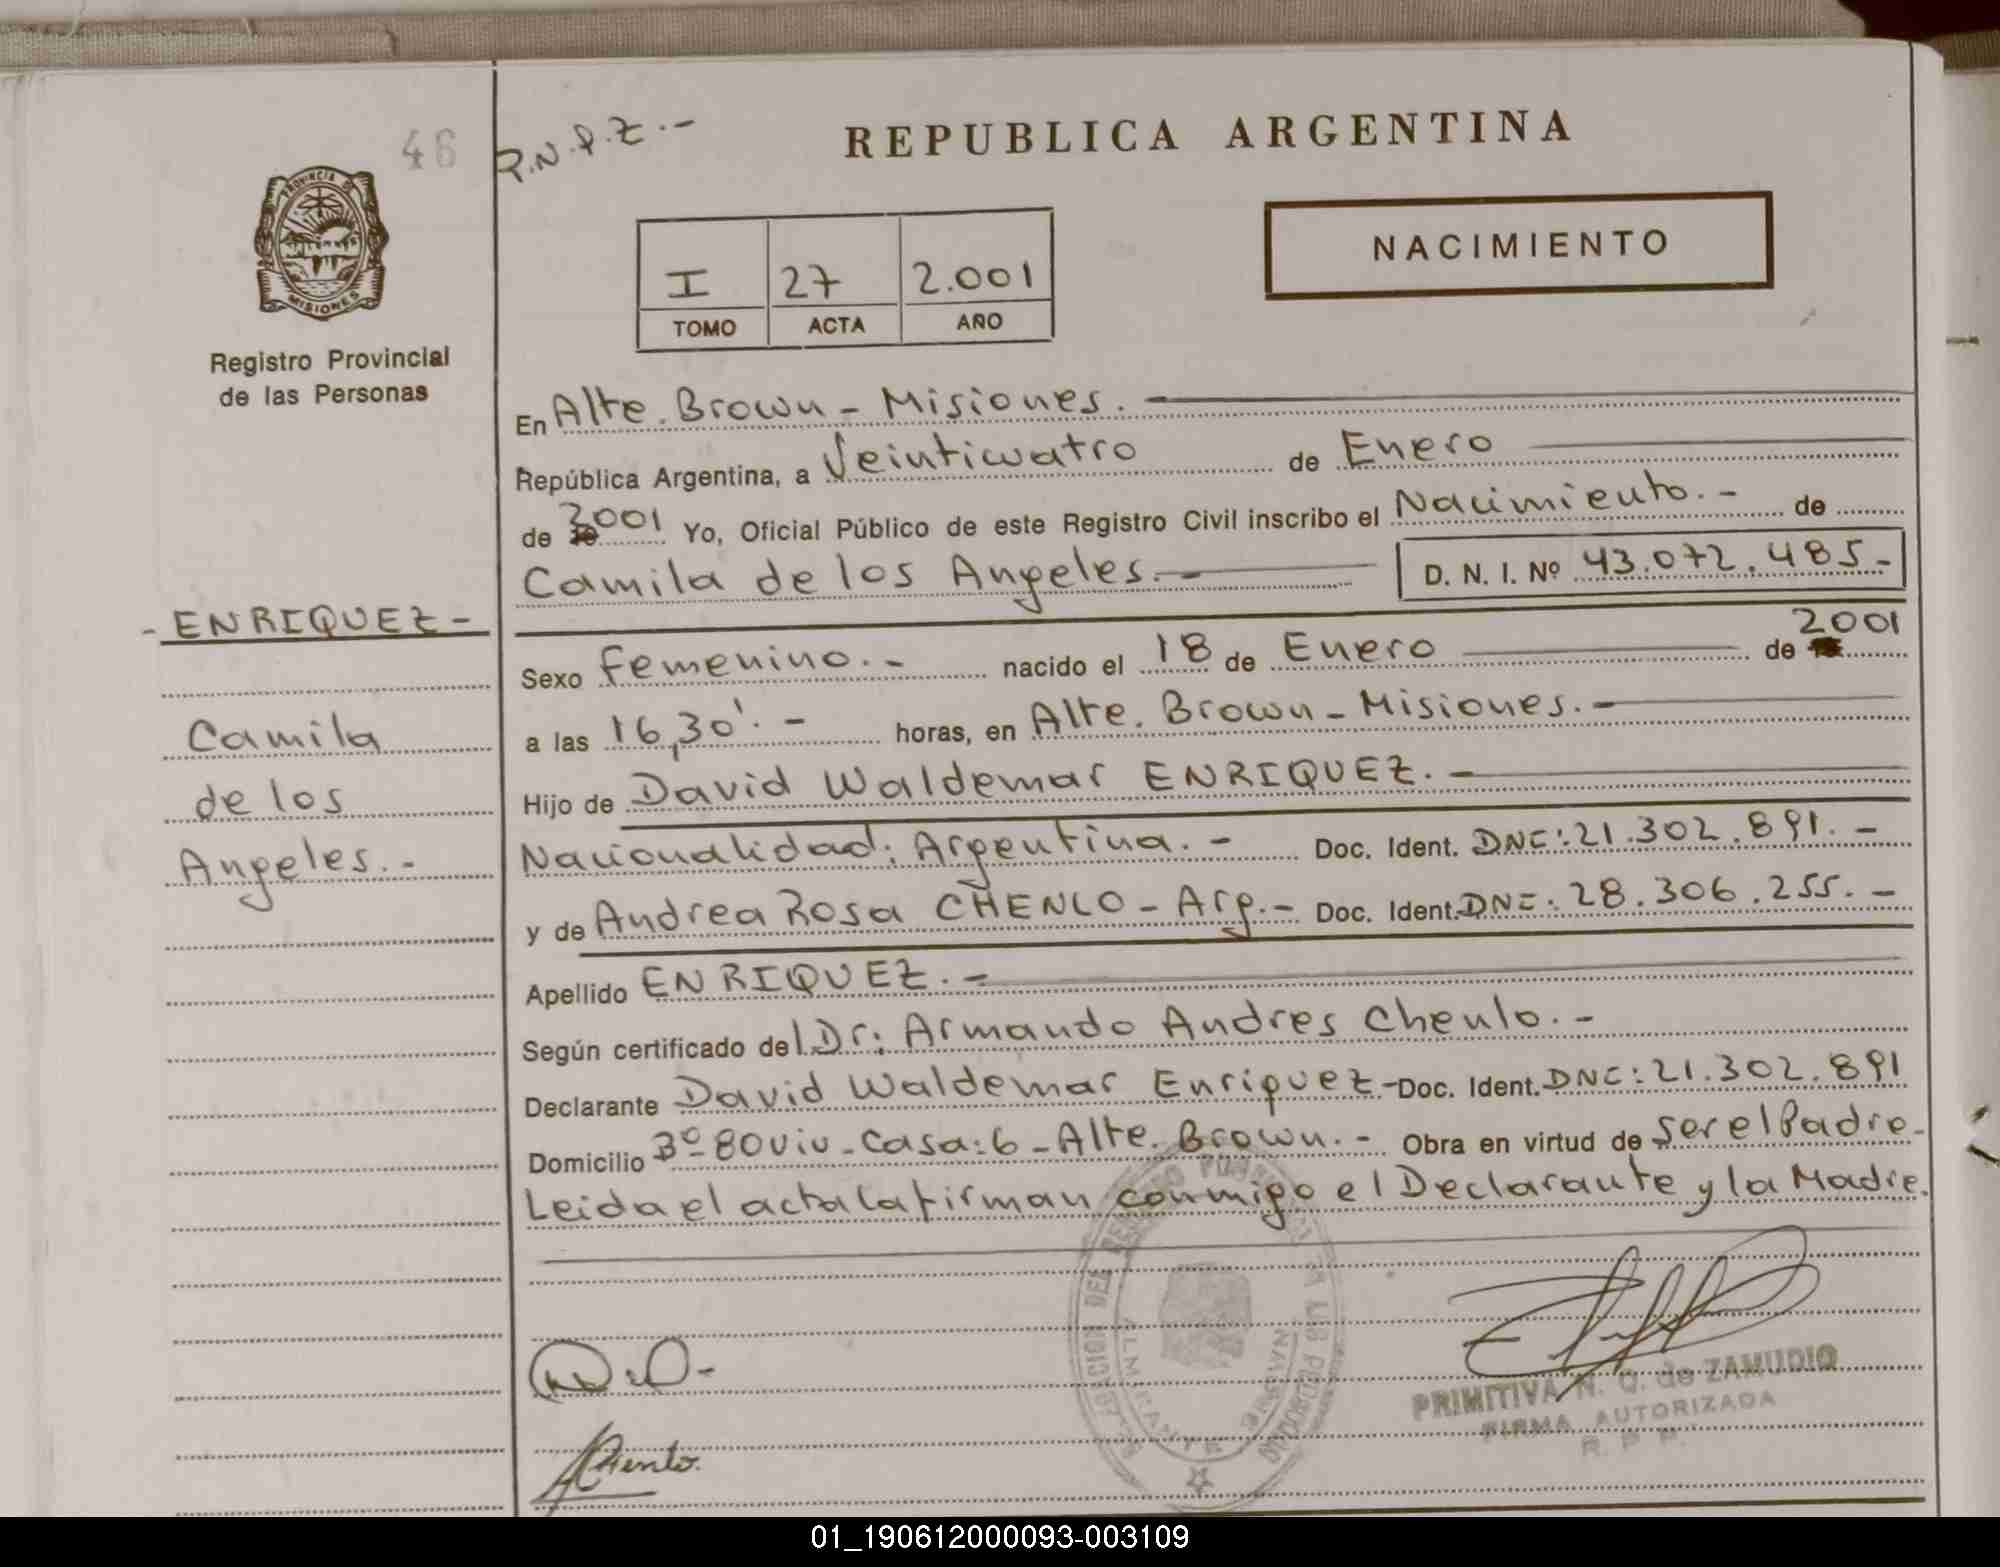 46
P.N.P.Z.-
REPUBLICA ARGENTINA
PROVINCIA DE
MISIONES
Registro Provincial
de las Personas
I 27 2.001
TOMO ACTA AÑO
NACIMIENTO
En Alte. Brown - Misiones.
República Argentina, a Veinticuatro de Enero
de 2001 Yo, Oficial Público de este Registro Civil inscribo el Nacimiento.- de
Camila de los Angeles.- D. N. I. Nº 43.072.485-
- ENRIQUEZ -
Camila
de los
Angeles.-
Sexo Femenino.- nacido el 18 de Enero de 2001
a las 16,30'.- horas, en Alte. Brown - Misiones.-
Hijo de David Waldemar ENRIQUEZ.-
Nacionalidad: Argentina.- Doc. Ident. DNI: 21.302.891.-
y de Andrea Rosa CHENLO - Arg.- Doc. Ident. DNI: 28.306.255.-
Apellido ENRIQUEZ.-
Según certificado del Dr: Armando Andres Chenlo.-
Declarante David Waldemar Enriquez- Doc. Ident. DNI: 21.302.891
Domicilio Bº 80 Viv - Casa: 6 - Alte. Brown.- Obra en virtud de ser el Padre-
Leida el acta la firman conmigo el Declarante y la Madre.
ALMIRANTE
MISIONES
Chenlo
PRIMITIVA N. G. de ZAMUDIO
FIRMA AUTORIZADA
R. P. P.
01_190612000093-003109